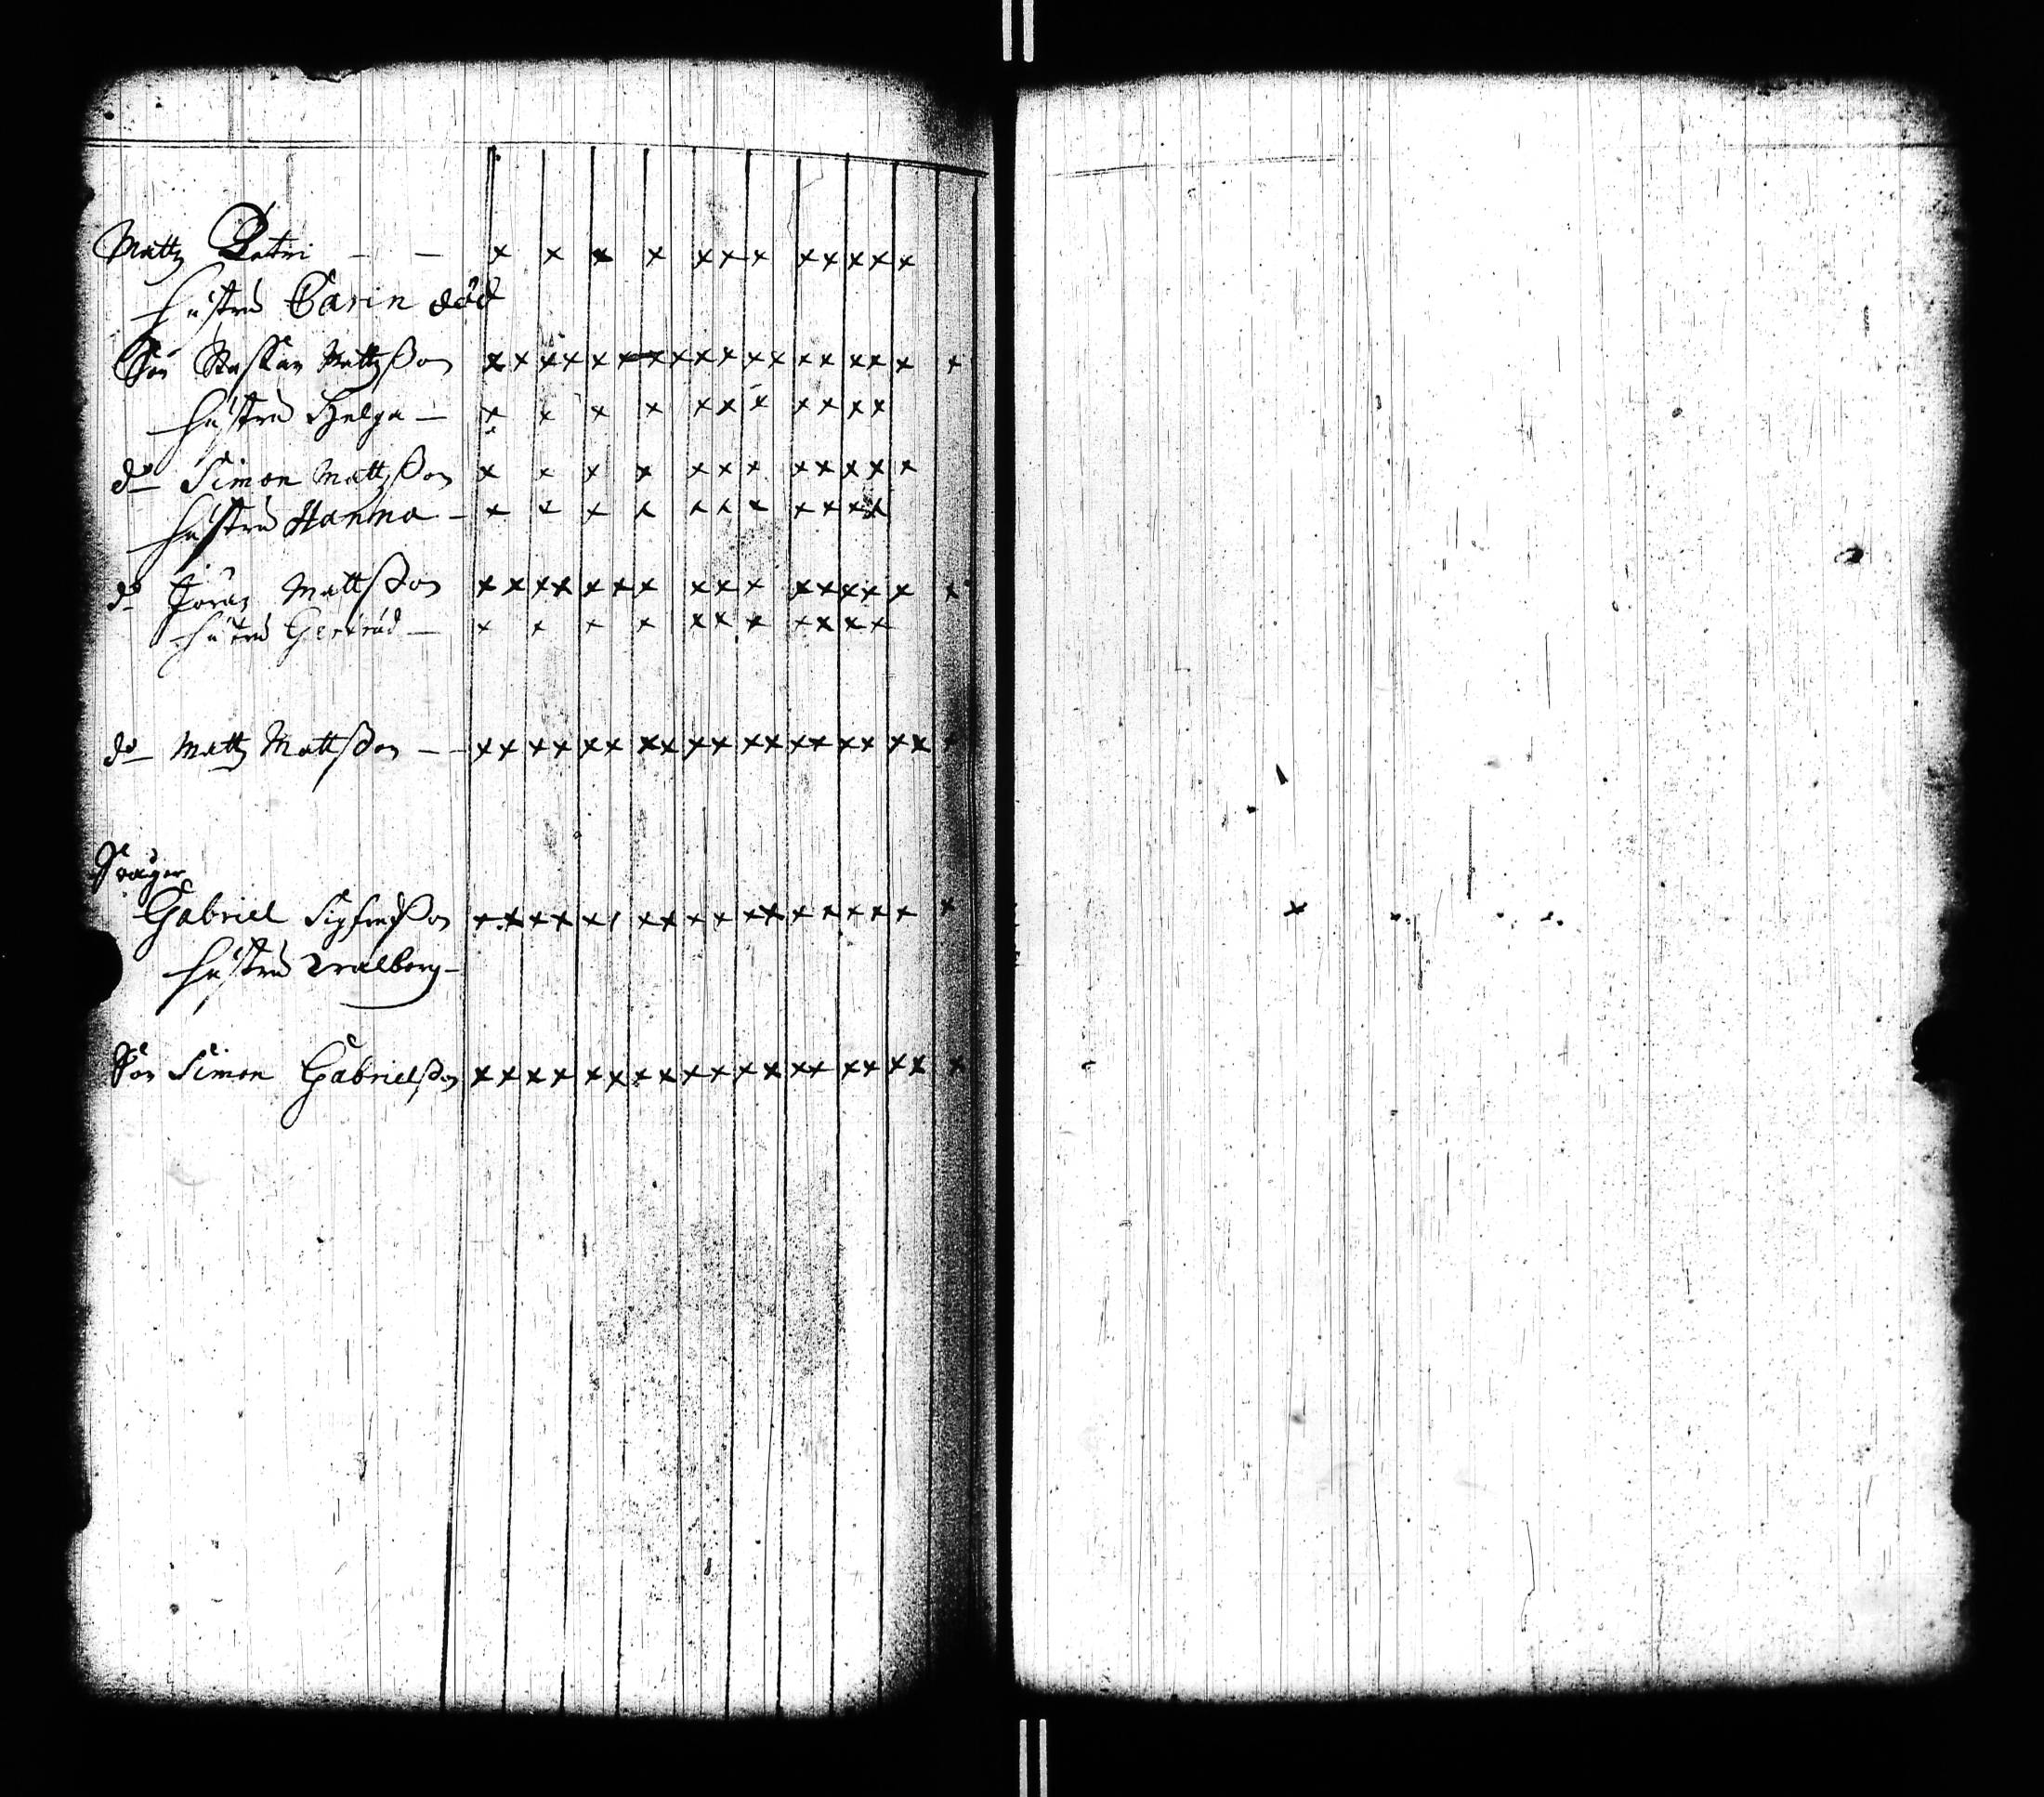 Mattz Petri – – x x x x x x x x x x x x
hustru Carin död
Son Staffan Mattzßon x x x x x x x x x x x x x x x x x x
hustru Helga – x x x x x x x x x x x
do Simon Mattzßon x x x x x x x x x x x x
hustru Hanna – x x x x x x x x x x x
do Jöran Mattßon x x x x x x x x x x x x x x x x
hustru Gertrud – x x x x x x x x x x x
do Mattz Mattßon – – x x x x x x x x x x x x x x x x x x x
Swåger
Gabriel Sigfredßon x x x x x x x x x x x x x x x x x x
hustru Walborg –
Son Simon Gabrielßon x x x x x x x x x x x x x x x x x x x